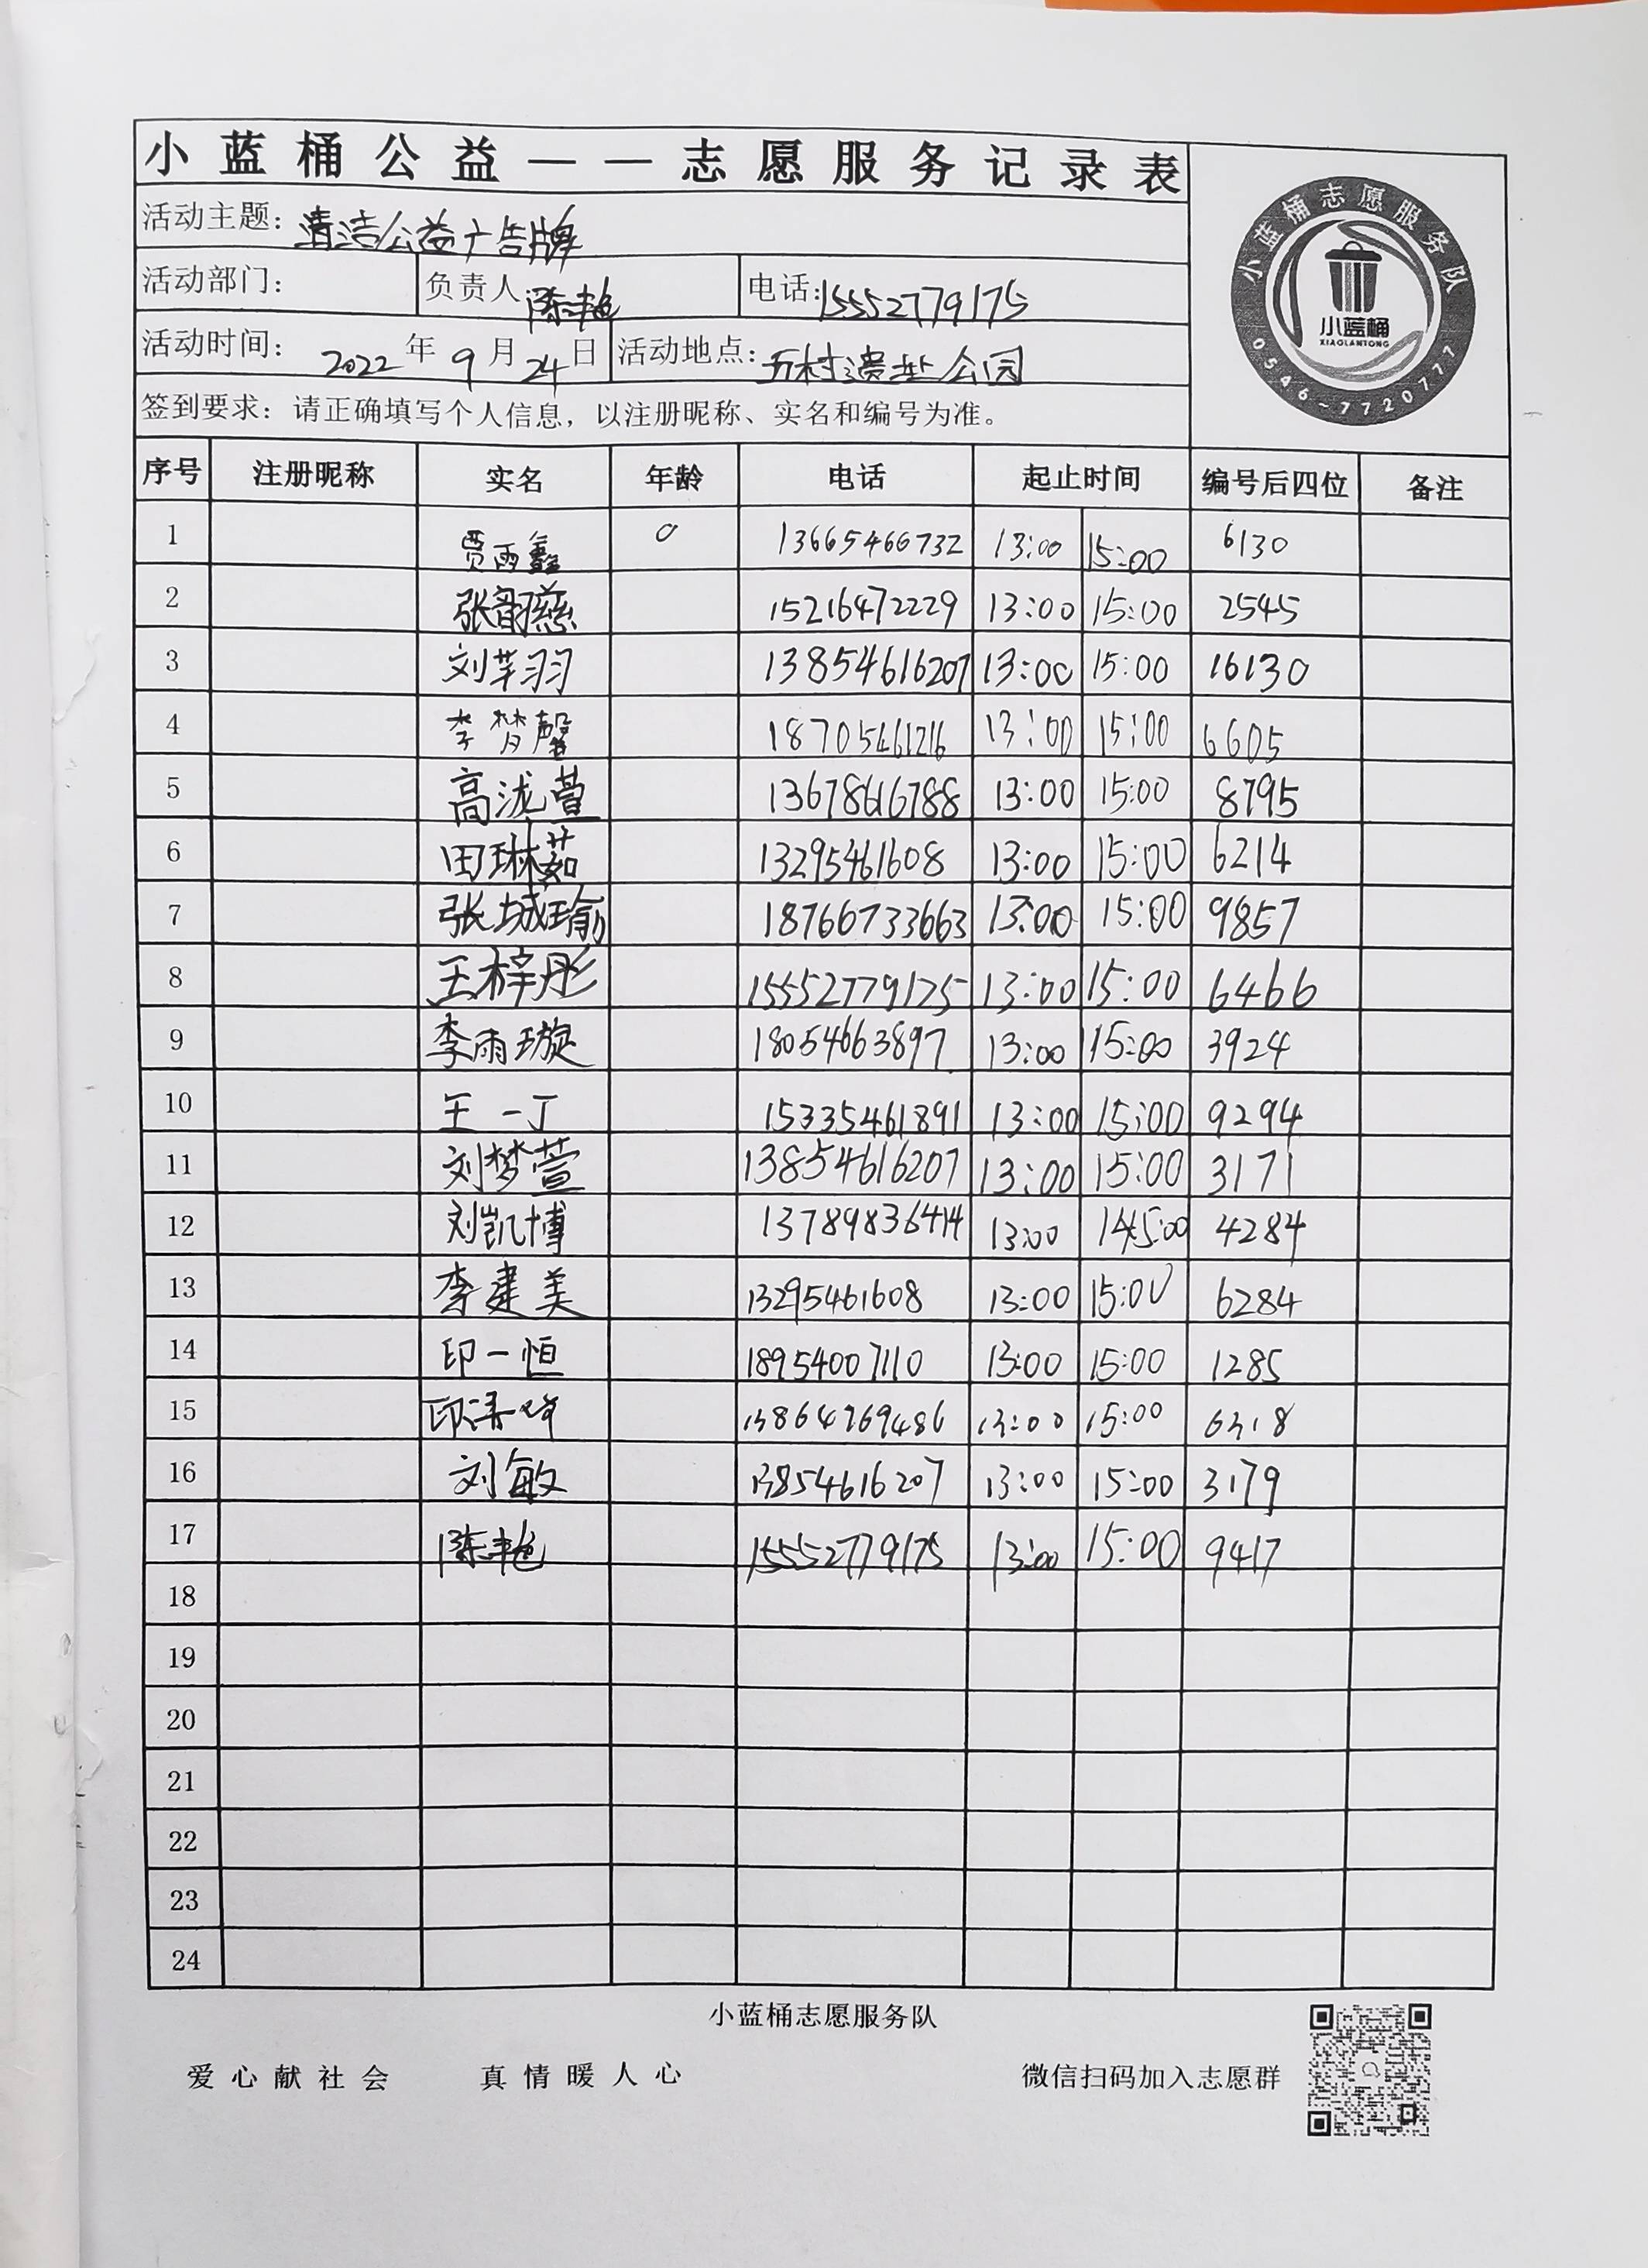 小蓝桶公益——志愿服务记录表
小蓝桶志愿服务队
小蓝桶
XIAOLANTONG
0546-7720777
活动主题：清洁公益广告牌
活动部门： 负责人 陈丰艳 电话：15552779175
活动时间： 2022年9月24日 活动地点：五村遗址公园
签到要求：请正确填写个人信息，以注册昵称、实名和编号为准。
序号 注册昵称 实名 年龄 电话 起止时间 编号后四位 备注
1 贾雨鑫 0 13665466732 13:00 15:00 6130
2 张韵慈 15216472229 13:00 15:00 2545
3 刘芊羽 13854616207 13:00 15:00 16130
4 李梦馨 18705461216 13:00 15:00 6605
5 高泷萱 13678616788 13:00 15:00 8795
6 田琳茹 13295461608 13:00 15:00 6214
7 张城瑜 18766733663 13:00 15:00 9857
8 王梓彤 15552779175 13:00 15:00 6466
9 李雨璇 18054663897 13:00 15:00 3924
10 王一丁 15335461891 13:00 15:00 9294
11 刘梦萱 13854616207 13:00 15:00 3171
12 刘凯博 13:00 4284
13 李建美 13295461608 13:00 15:00 6284
14 印一恒 18954007110 13:00 15:00 1285
15 印 13864769486 13:00 15:00 6318
16 刘敏 13854616207 13:00 15:00 3179
17 陈丰艳 15552779175 13:00 15:00 9417
18
19
20
21
22
23
24
小蓝桶志愿服务队
爱心献社会 真情暖人心 微信扫码加入志愿群